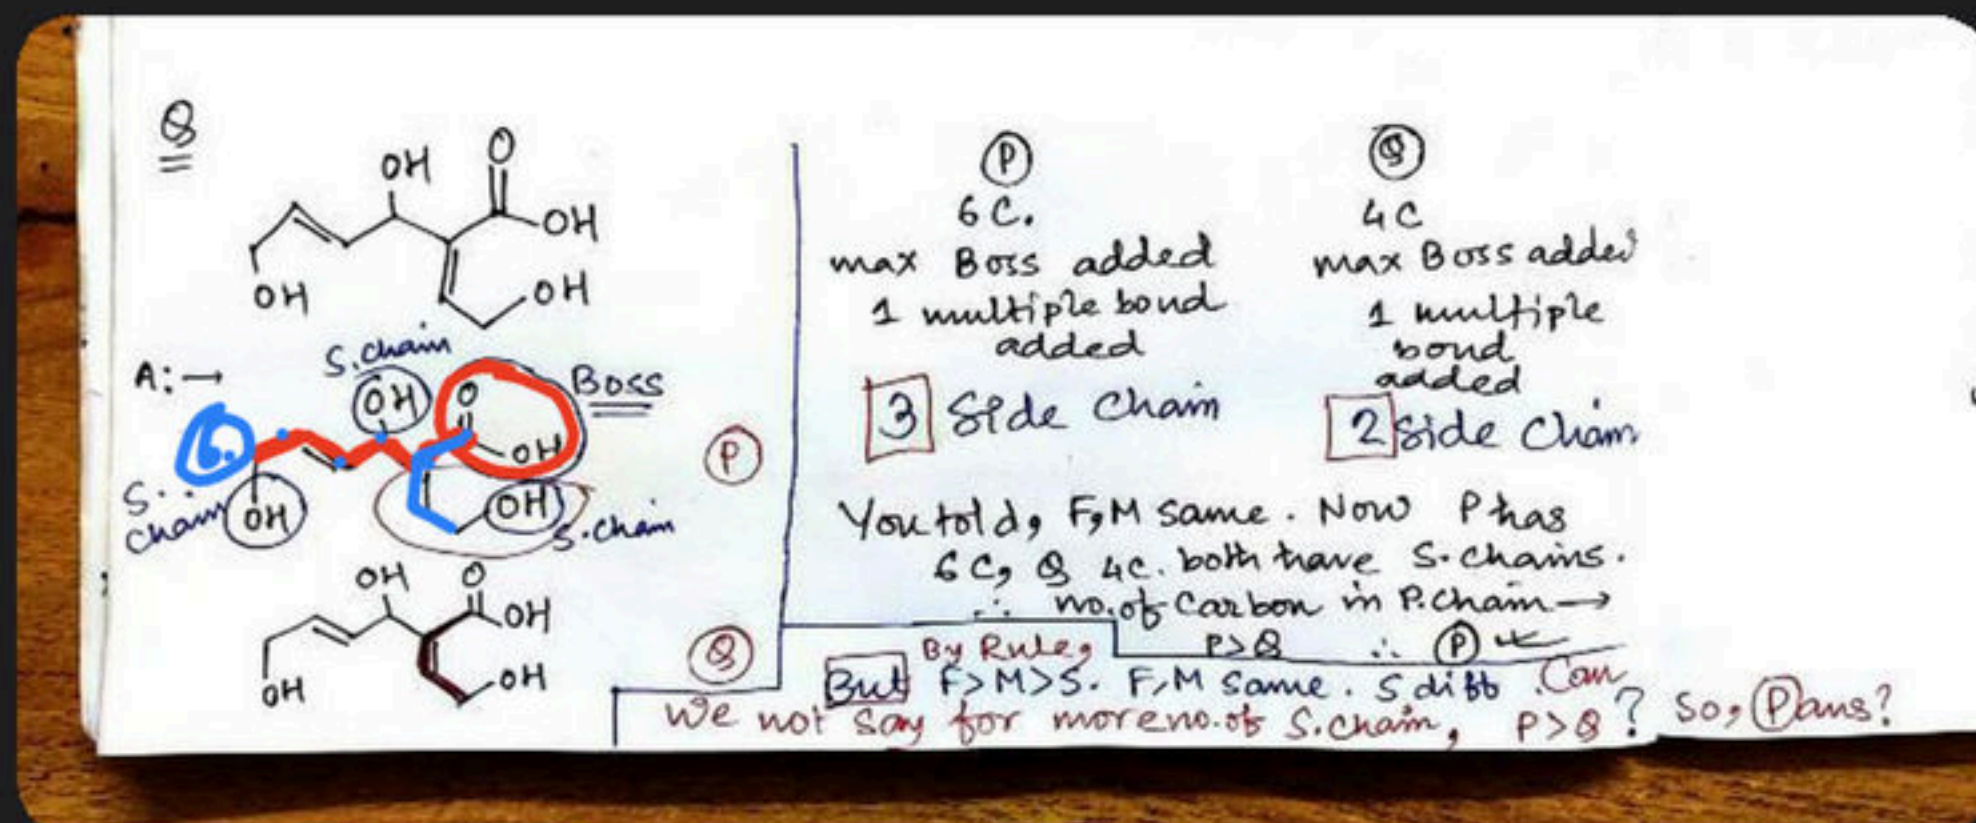 Q
OH
O
OH
OH
OH
A:→
S.chain
OH
O
Boss
OH
6.
S. chain
OH
OH
S.chain
OH
O
OH
OH
OH
P
Q
P
6 C.
max Boss added
1 multiple bond
added
3 Side Chain
Q
4C
max Boss added
1 multiple
bond
added
2 Side Chain
You told, F,M same. Now P has
6C, Q 4c. both have S. chains.
∴ no. of Carbon in P.Chain →
P>Q ∴ P
By Rule,
But F>M>S. F,M same. S diff. Can
we not say for more no. of S.chain, P>Q? So, P ans?